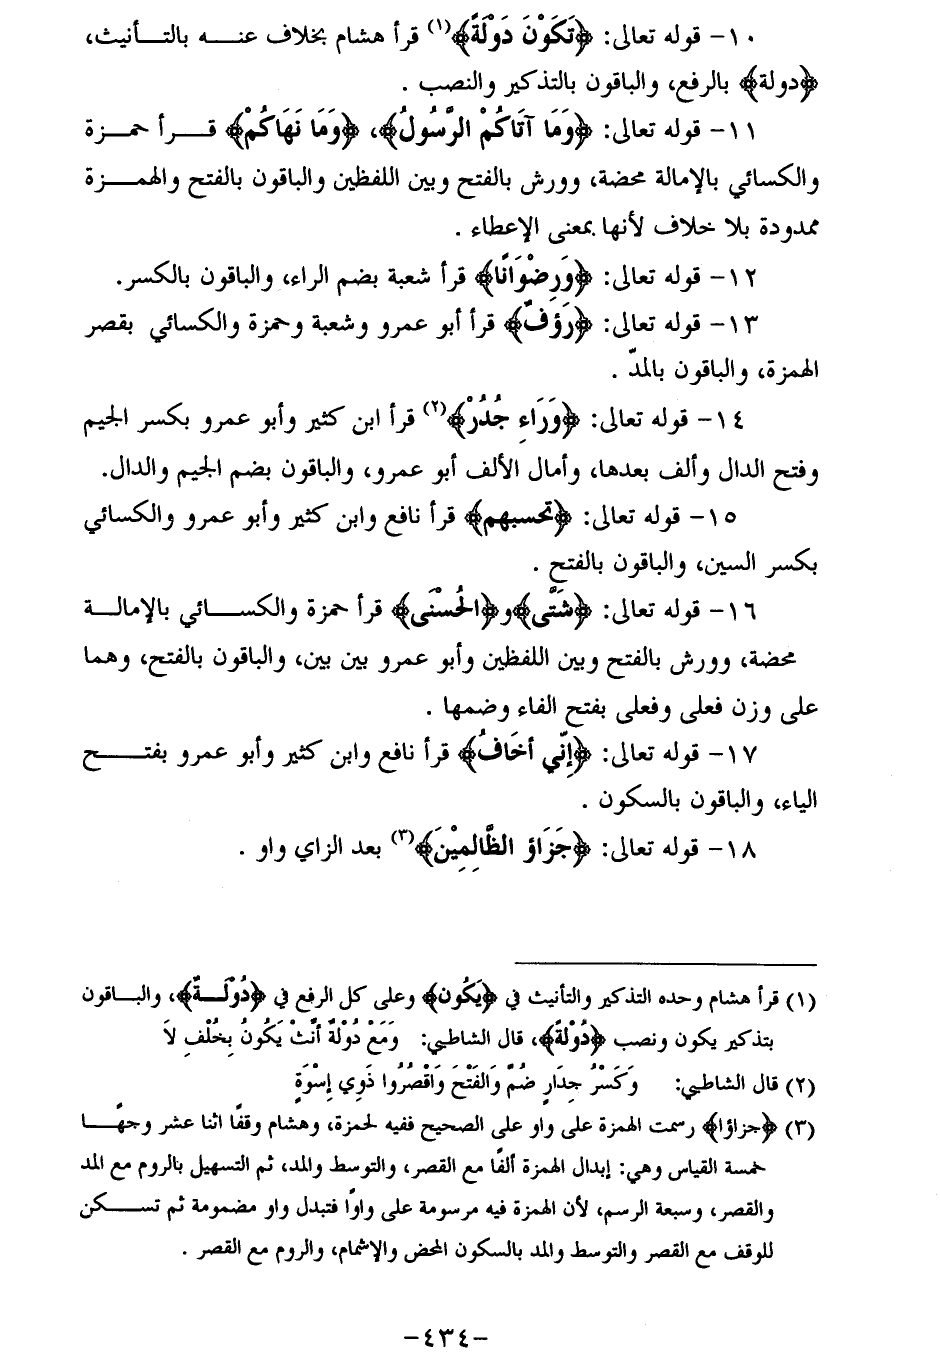 ١٠- قوله تعالى: ﴿تَكُوْنَ دَوْلَةً﴾(١) قرأ هشام بخلاف عنه بالتأنيث،
﴿دولة﴾ بالرفع، والباقون بالتذكير والنصب .
١١- قوله تعالى: ﴿وَمَا آتَاكُمْ الرَّسُولُ﴾، ﴿وَمَا نَهَاكُمْ﴾ قرأ حمزة
والكسائي بالإمالة محضة، وورش بالفتح وبين اللفظين والباقون بالفتح والهمزة
ممدودة بلا خلاف لأنها بمعنى الإعطاء .
١٢- قوله تعالى: ﴿وَرِضْوَانًا﴾ قرأ شعبة بضم الراء، والباقون بالكسر.
١٣- قوله تعالى: ﴿رَؤَفٌ﴾ قرأ أبو عمرو وشعبة وحمزة والكسائي بقصر
الهمزة، والباقون بالمدّ .
١٤- قوله تعالى: ﴿وَرَاءِ جُدُرْ﴾(٢) قرأ ابن كثير وأبو عمرو بكسر الجيم
وفتح الدال وألف بعدها، وأمال الألف أبو عمرو، والباقون بضم الجيم والدال.
١٥- قوله تعالى: ﴿تحسبهم﴾ قرأ نافع وابن كثير وأبو عمرو والكسائي
بكسر السين، والباقون بالفتح .
١٦- قوله تعالى: ﴿شَتَّى﴾ و﴿الحُسْنَى﴾ قرأ حمزة والكسائي بالإمالة
محضة، وورش بالفتح وبين اللفظين وأبو عمرو بين بين، والباقون بالفتح، وهما
على وزن فعلى وفعلى بفتح الفاء وضمها .
١٧- قوله تعالى: ﴿إِنّي أخَافُ﴾ قرأ نافع وابن كثير وأبو عمرو بفتح
الياء، والباقون بالسكون .
١٨- قوله تعالى: ﴿جَزَاؤ الظَّالِمِيْنَ﴾(٣) بعد الزاي واو .
(١) قرأ هشام وحده التذكير والتأنيث في ﴿يَكُون﴾ وعلى كل الرفع في ﴿دُوْلَةٌ﴾، والباقون
بتذكير يكون ونصب ﴿دُوْلةً﴾، قال الشاطبي: وَمَعْ دُوْلَةٌ أنَّثْ يَكُونُ بِخُلْفِ لاَ
(٢) قال الشاطبي: وَكَسْرُ جِدَارٍ ضُمَّ وَالفَتْحَ وَاقْصُرُوا ذَوِي إسْوَةٍ
(٣) ﴿جزاؤا﴾ رسمت الهمزة على واو على الصحيح ففيه لحمزة، وهشام وقفًا اثنا عشر وجهًا
خمسة القياس وهي: إبدال الهمزة ألفًا مع القصر، والتوسط والمد، ثم التسهيل بالروم مع المد
والقصر، وسبعة الرسم، لأن الهمزة فيه مرسومة على واوًا فتبدل واو مضمومة ثم تسكن
للوقف مع القصر والتوسط والمد بالسكون المحض والإشمام، والروم مع القصر .
-٤٣٤-